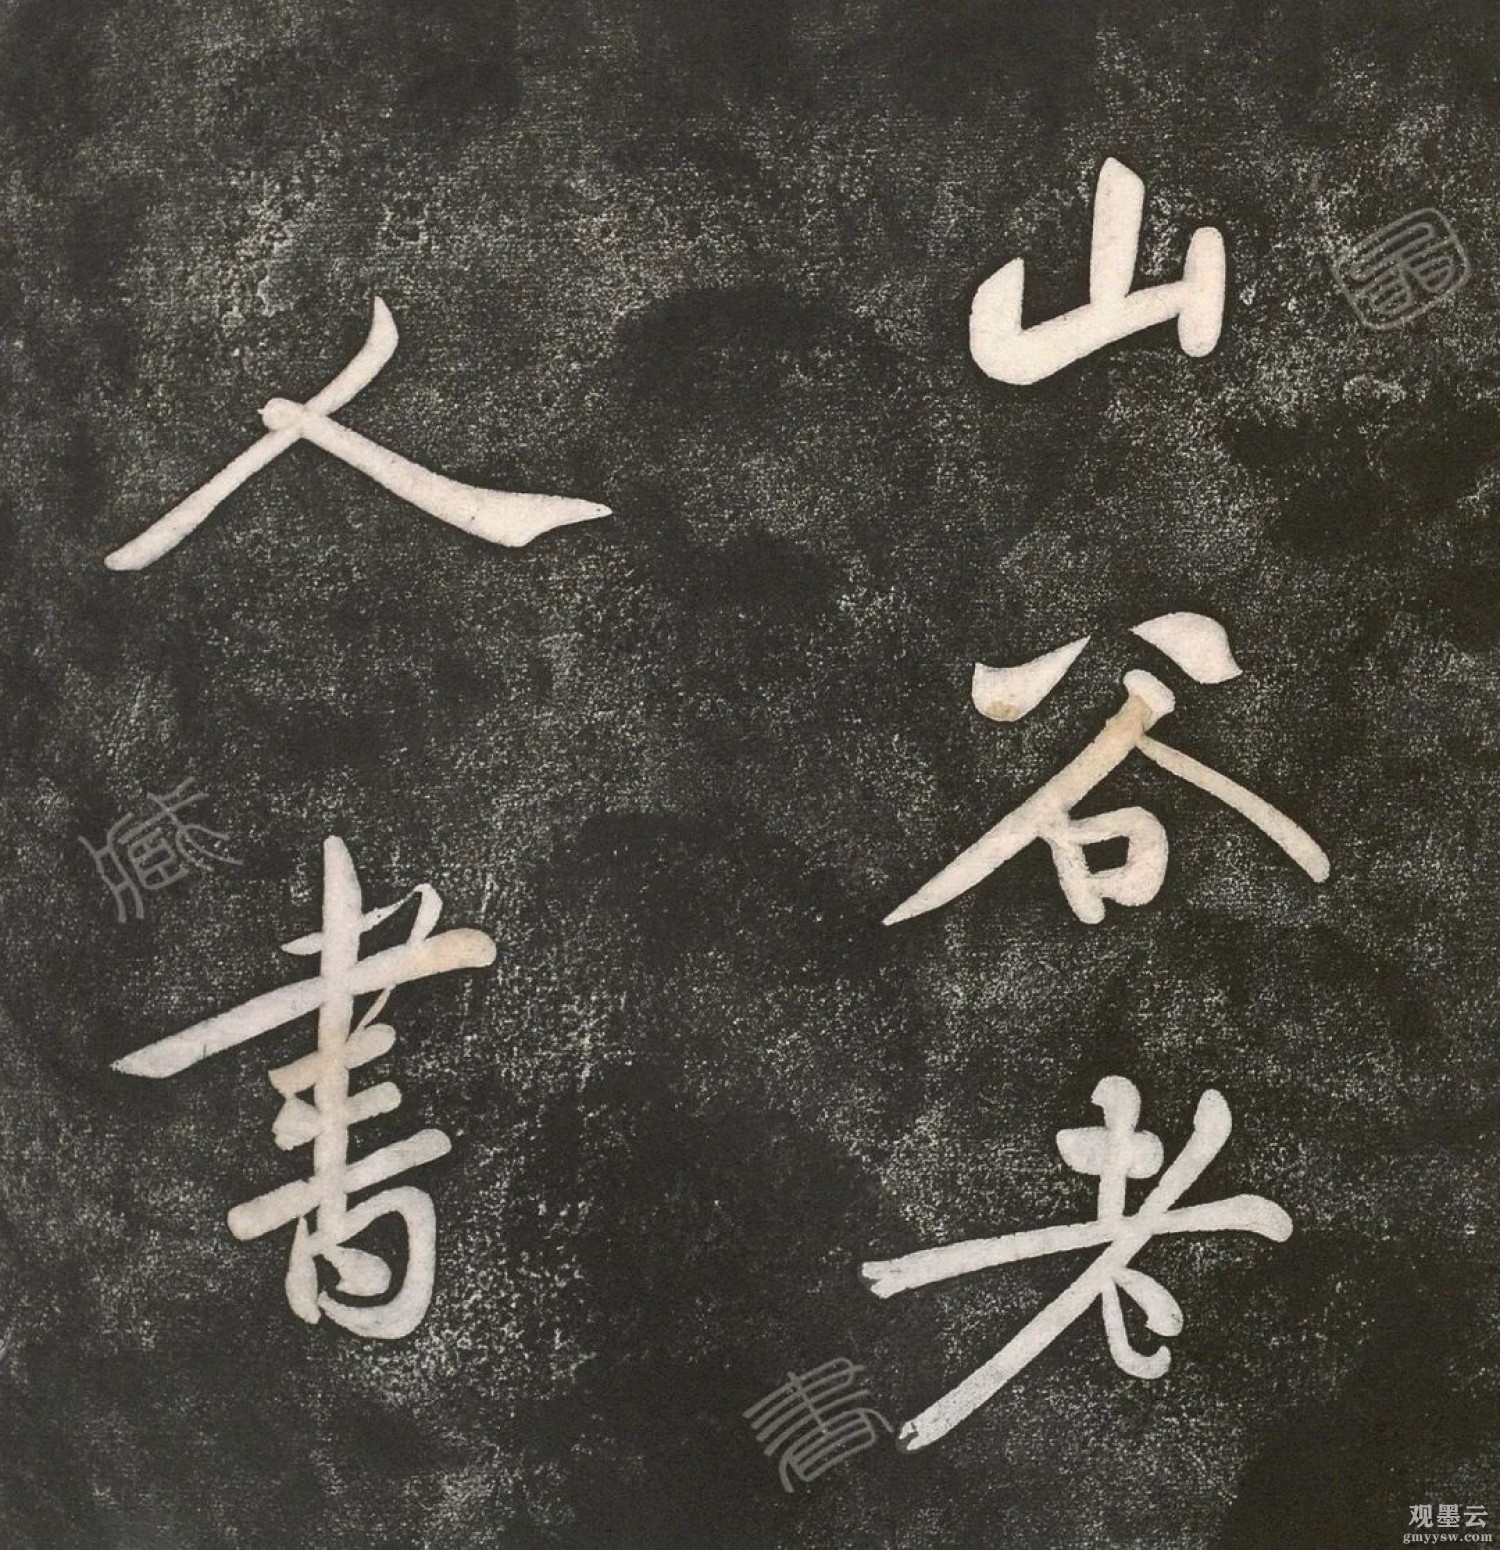 山谷老
人書
観墨云
gmyysw.com